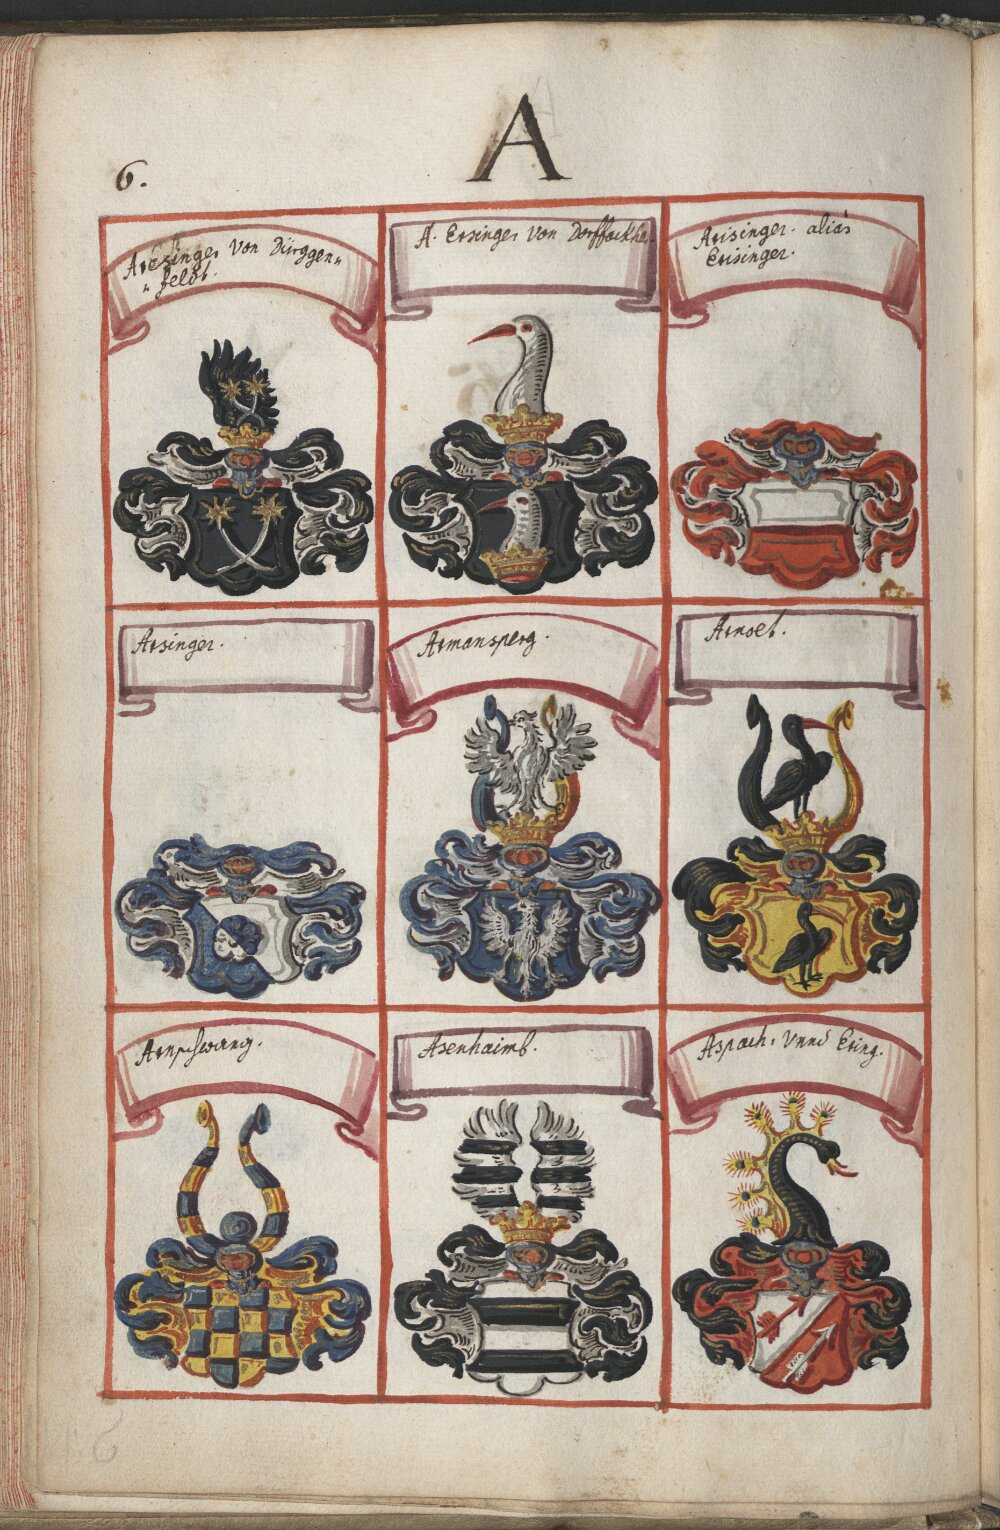 A
6.
Arezinger von Dürggen„
„feldt.
A. Ersinger von Dorffackhe
Arisinger. alias
Erisinger.
Arsinger.
Armansperg.
Arnoet.
Arnpschwang.
Asenhaimb.
Aspach. vnnd Ering.